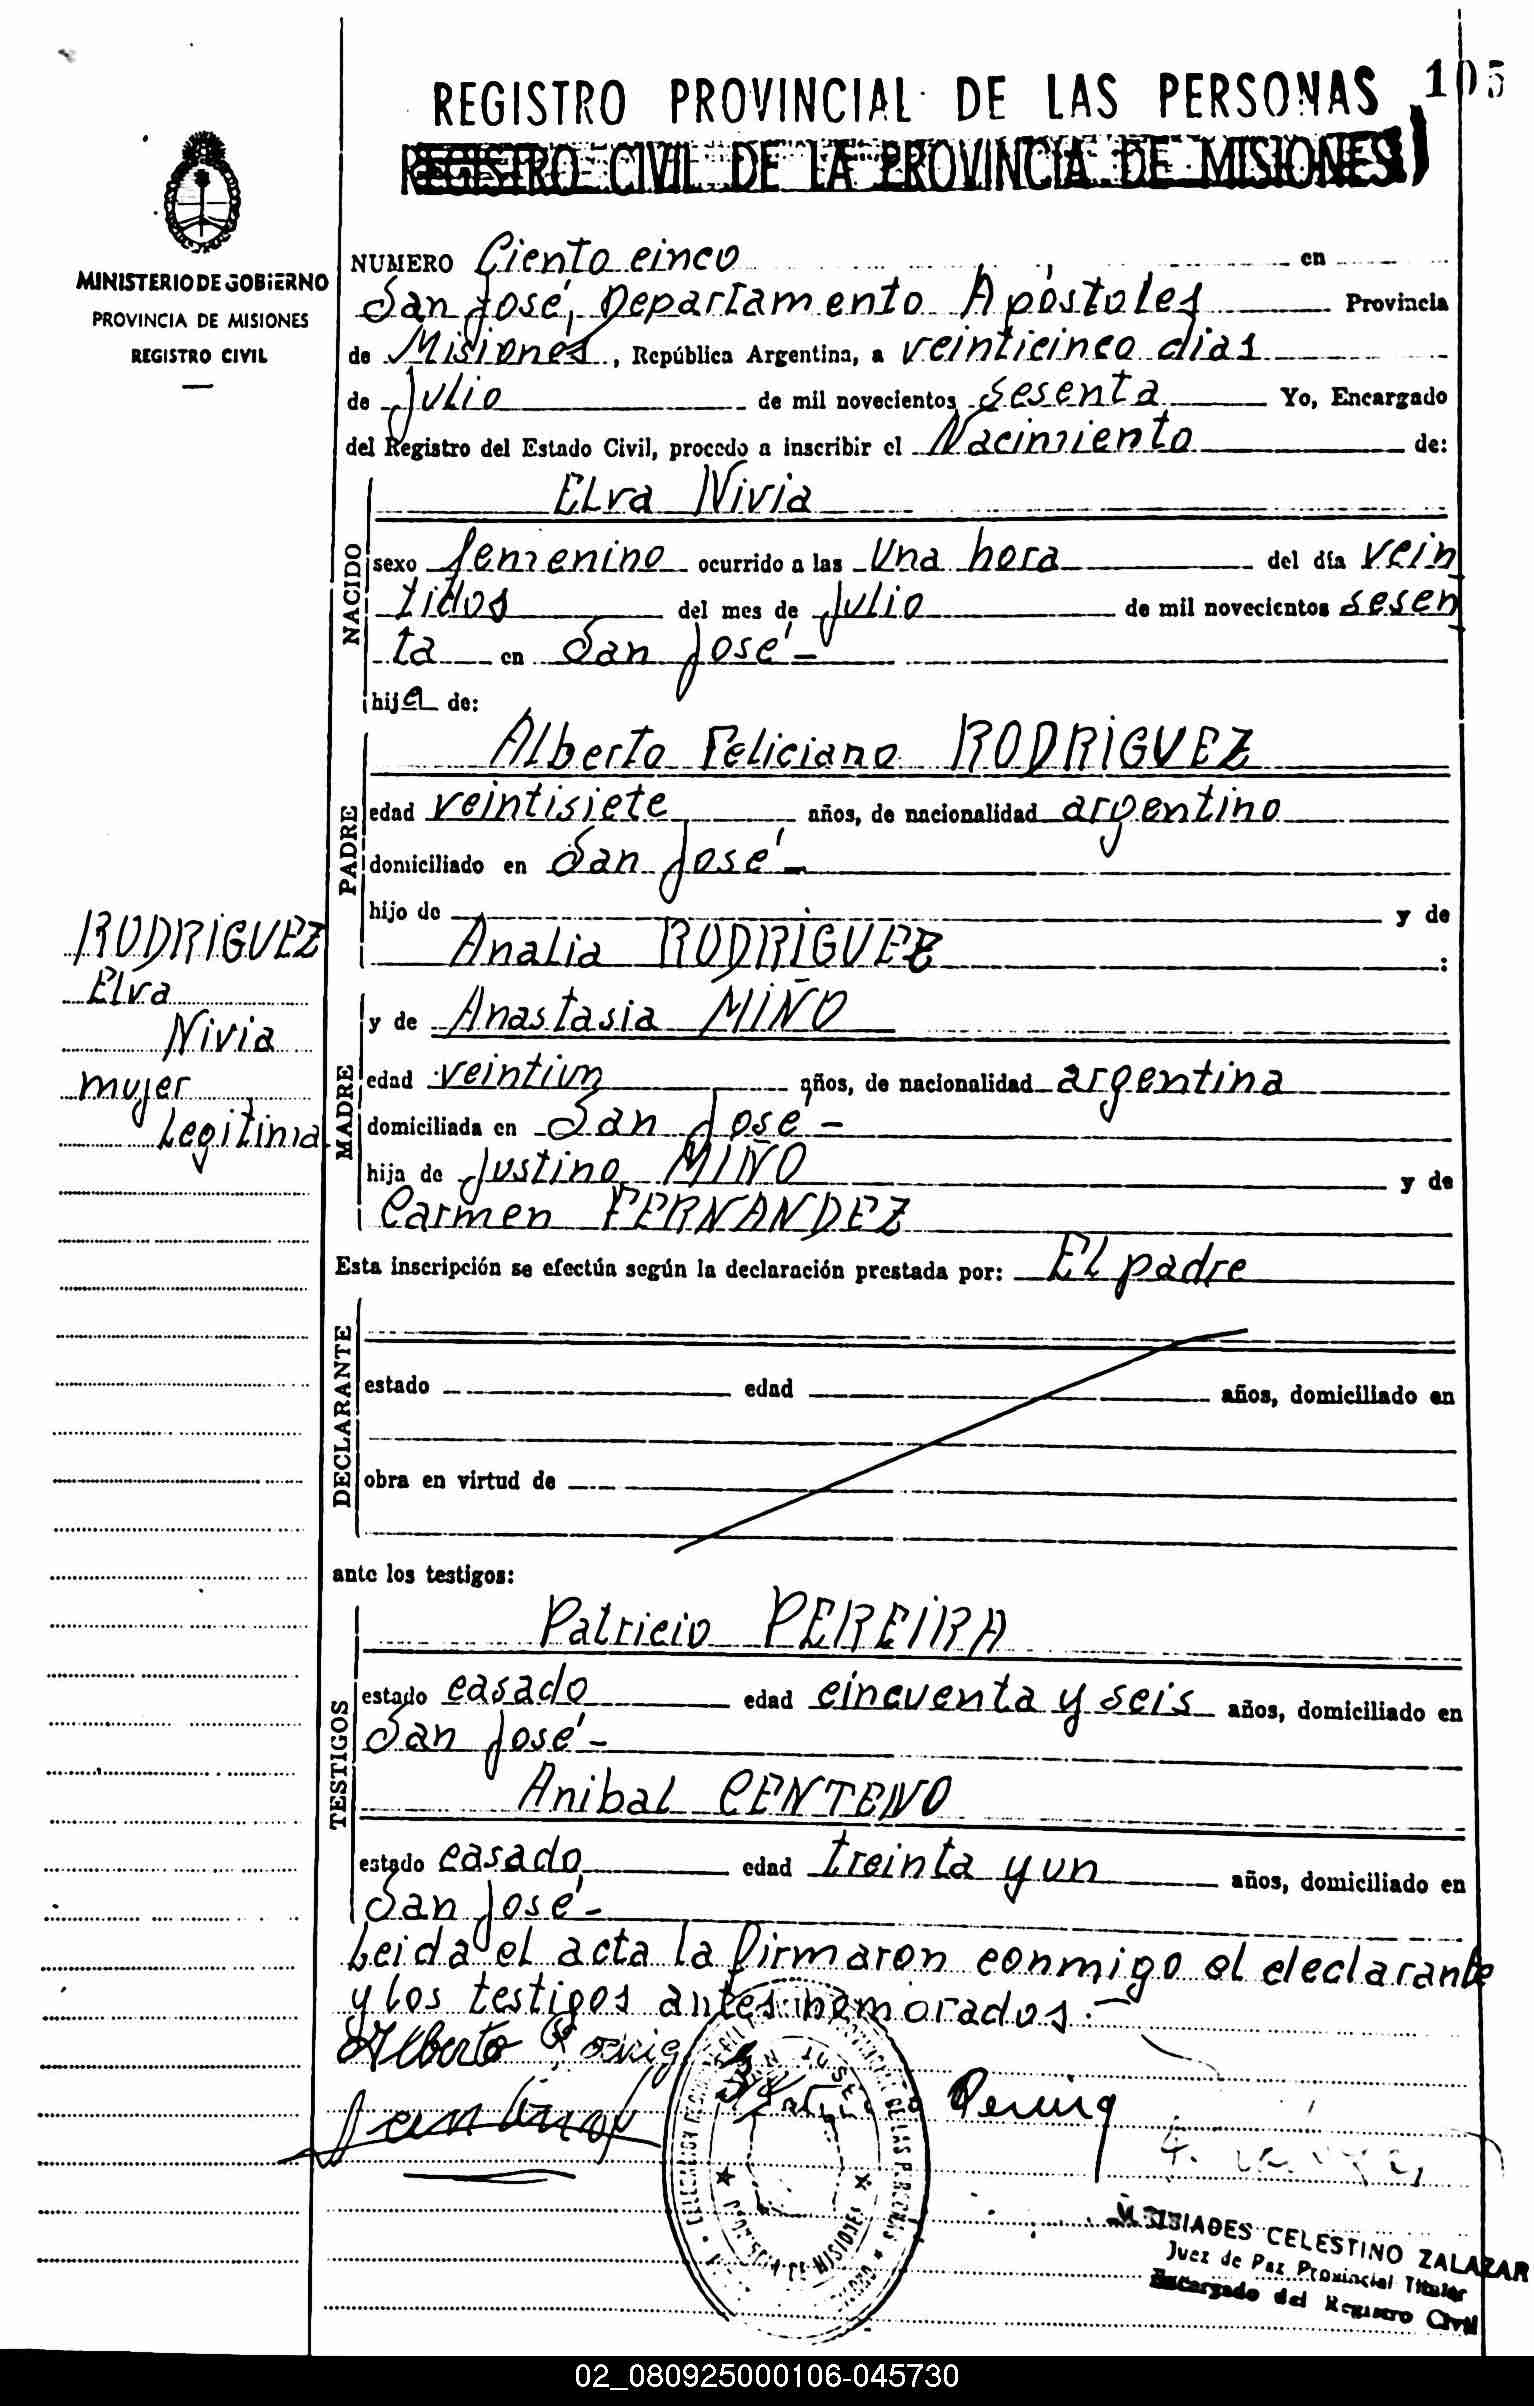 105
REGISTRO PROVINCIAL DE LAS PERSONAS
REGISTRO CIVIL DE LA PROVINCIA DE MISIONES
MINISTERIO DE GOBIERNO
PROVINCIA DE MISIONES
REGISTRO CIVIL
NUMERO Ciento cinco en
San José, Departamento Apóstoles Provincia
de Misiones, República Argentina, a veinticinco dias
de Julio de mil novecientos sesenta Yo, Encargado
del Registro del Estado Civil, procedo a inscribir el Nacimiento de:
NACIDO
Elva Nivia
sexo femenino ocurrido a las Una hora del día vein
tidos del mes de Julio de mil novecientos sesen
ta en San José-
hija de:
PADRE
Alberto Feliciano RODRIGUEZ
edad veintisiete años, de nacionalidad argentino
domiciliado en San José-
hijo de y de
Analia RODRIGUEZ :
RODRIGUEZ
Elva
Nivia
mujer
Legitima
MADRE
y de Anastasia MIÑO
edad veintiun años, de nacionalidad argentina
domiciliada en San José-
hija de Justino MIÑO y de
Carmen FERNANDEZ
Esta inscripción se efectúa según la declaración prestada por: El padre
DECLARANTE
estado edad años, domiciliado en
obra en virtud de
ante los testigos:
TESTIGOS
Patricio PEREIRA
estado casado edad cincuenta y seis años, domiciliado en
San José-
Anibal CENTENO
estado casado edad treinta y un años, domiciliado en
San José-
Leida el acta la firmaron conmigo el declarante
y los testigos antes nemorados.-
Alberto Rodrig
SAN JOSE
MISIONES
CELESTINO ZALAZAR
Juez de Paz Provincial Titular
Encargado del Registro Civil
02_080925000106-045730